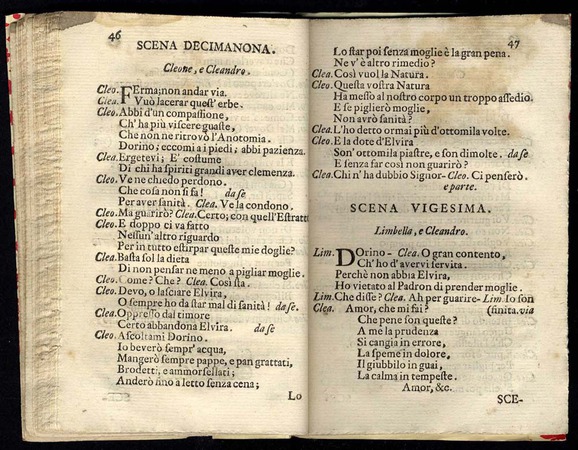 46
SCENA DECIMANONA.
Cleone, e Cleandro.
Cleo. FErma; non andar via.
Clea. Vuò lacerar quest' erbe.
Cleo. Abbi d'un compassione,
Ch'ha più viscere guaste,
Che non ne ritrovò l'Anotomia.
Dorino; eccomi a i piedi; abbi pazienza.
Clea. Ergetevi; E' costume
Di chi ha spiriti grandi aver clemenza.
Cleo. Ve ne chiedo perdono.
Che cosa non si fa! da se
Per aver sanità. Clea. Ve la condono.
Cleo. Ma guarirò? Clea. Certo; con quell'Estratto
Cleo. E doppo ci va fatto
Nessun'altro riguardo
Per in tutto estirpar queste mie doglie?
Clea. Basta sol la dieta
Di non pensar ne meno a pigliar moglie.
Cleo. Come? Che? Clea. Così sta.
Cleo. Devo, o lasciare Elvira,
O sempre ho da star mal di sanità! da se.
Clea. Oppresso dal timore
Certo abbandona Elvira. da se
Cleo. Ascoltami Dorino.
Io beverò sempr' acqua,
Mangerò sempre pappe, e pan grattati,
Brodetti, e ammorsellati;
Anderò sino a letto senza cena;
Lo
47
Lo star poi senza moglie è la gran pena.
Ne v' è altro rimedio?
Clea. Così vuol la Natura.
Cleo. Questa vostra Natura
Ha messo al nostro corpo un troppo assedio.
E se piglierò moglie,
Non avrò sanità?
Clea. L'ho detto ormai più d'ottomila volte.
Cleo. E la dote d'Elvira
Son' ottomila piastre, e son dimolte. da se
E senza far così non guarirò?
Clea. Chi n' ha dubbio Signor- Cleo. Ci penserò.
e parte.
SCENA VIGESIMA.
Limbella, e Cleandro.
Lim. DOrino - Clea. O gran contento,
Ch' ho d' avervi servita.
Perchè non abbia Elvira,
Ho vietato al Padron di prender moglie.
Lim. Che disse? Clea. Ah per guarire- Lim. Io son
Clea. Amor, che mi fai? (finita. via
Che pene son queste?
A me la prudenza
Si cangia in errore,
La speme in dolore,
Il giubbilo in guai,
La calma in tempeste.
Amor, &c.
SCE-